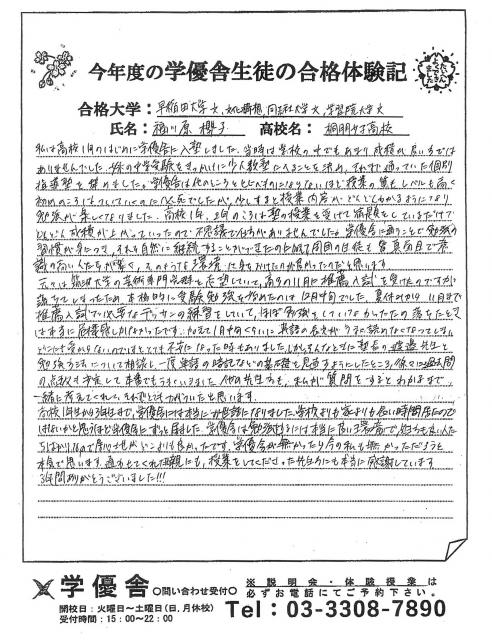 今年度の学優舎生徒の合格体験記
よくできました
合格大学：早稲田大学文、文化構想、同志社大学文、学習院大学文
氏名：福川原 櫻子 高校名：桐朋女子高校
私は高校1年のはじめに学優舎に入塾しました。当時は学校の中でもあまり成績の良い方では
ありませんでした。妹の中学受験をきっかけに少人数塾に入ることを決め、それまで通っていた個別
指導塾を辞めました。学優舎は他のところとは比べものにならないほど授業の質もレベルも高く
初めのころはついていくのに必死でしたが、少しすると授業内容がどんどんわかるようになり
勉強が楽しくなりました。高校1年、2年のころは塾の授業を受けて宿題をしているだけで
どんどん成績が上がっていったので不思議で仕方がありませんでした。学優舎に通うことで勉強の
習慣が身につき、それを自然に継続することができたのは
周囲の生徒も皆真面目で意
識の高い人たちが多く、そのような環境に身をおけたのが良かったのだと思います。
元々は筑波大学の芸術専門学群を志望していて、高3の11月に推薦入試を受けたのですが
落ちてしまったため、本格的に受験勉強を始めたのは12月中旬でした。夏休みから11月まで
推薦入試で必要なデッサンの練習をしていて、ほぼ勉強をしていなかったため
は本当に後悔しかなかったです。加えて1月中旬くらいに英語の長文がうまく読めなくなってしまい、
どこにも受からないのではととても不安になった時もありました。しかし、そんなときに塾長の渡邉先生と
勉強方法について相談し、一度単語の暗記などの基礎を見直すようにしたところ、徐々に過去問
の点数も安定して本番でもうまくいきました。他の先生方も、私が質問をするとわかるまで
一緒に考えてくれて、とても心強かったと思います。
高校1年生から3年生まで、学優舎には本当にお世話になりました。学校よりも家よりも長い時間居たので
はないかと思うほど学優舎にずっと居ました。学優舎は勉強するには本当に良い環境で
居心地がどこよりも良かったです。学優舎が無かったら今の私も無かっただろうと
本気で思います。通わせてくれた両親にも、授業をしてくださった先生方にも本当に感謝しています
3年間ありがとうございました!!!
学優舎 ○問い合わせ受付○ ※説明会・体験授業は
必ずお電話にてご予約下さい。
開校日：火曜日〜土曜日（日，月休校）
受付時間：15：00〜22：00
Tel：03-3308-7890